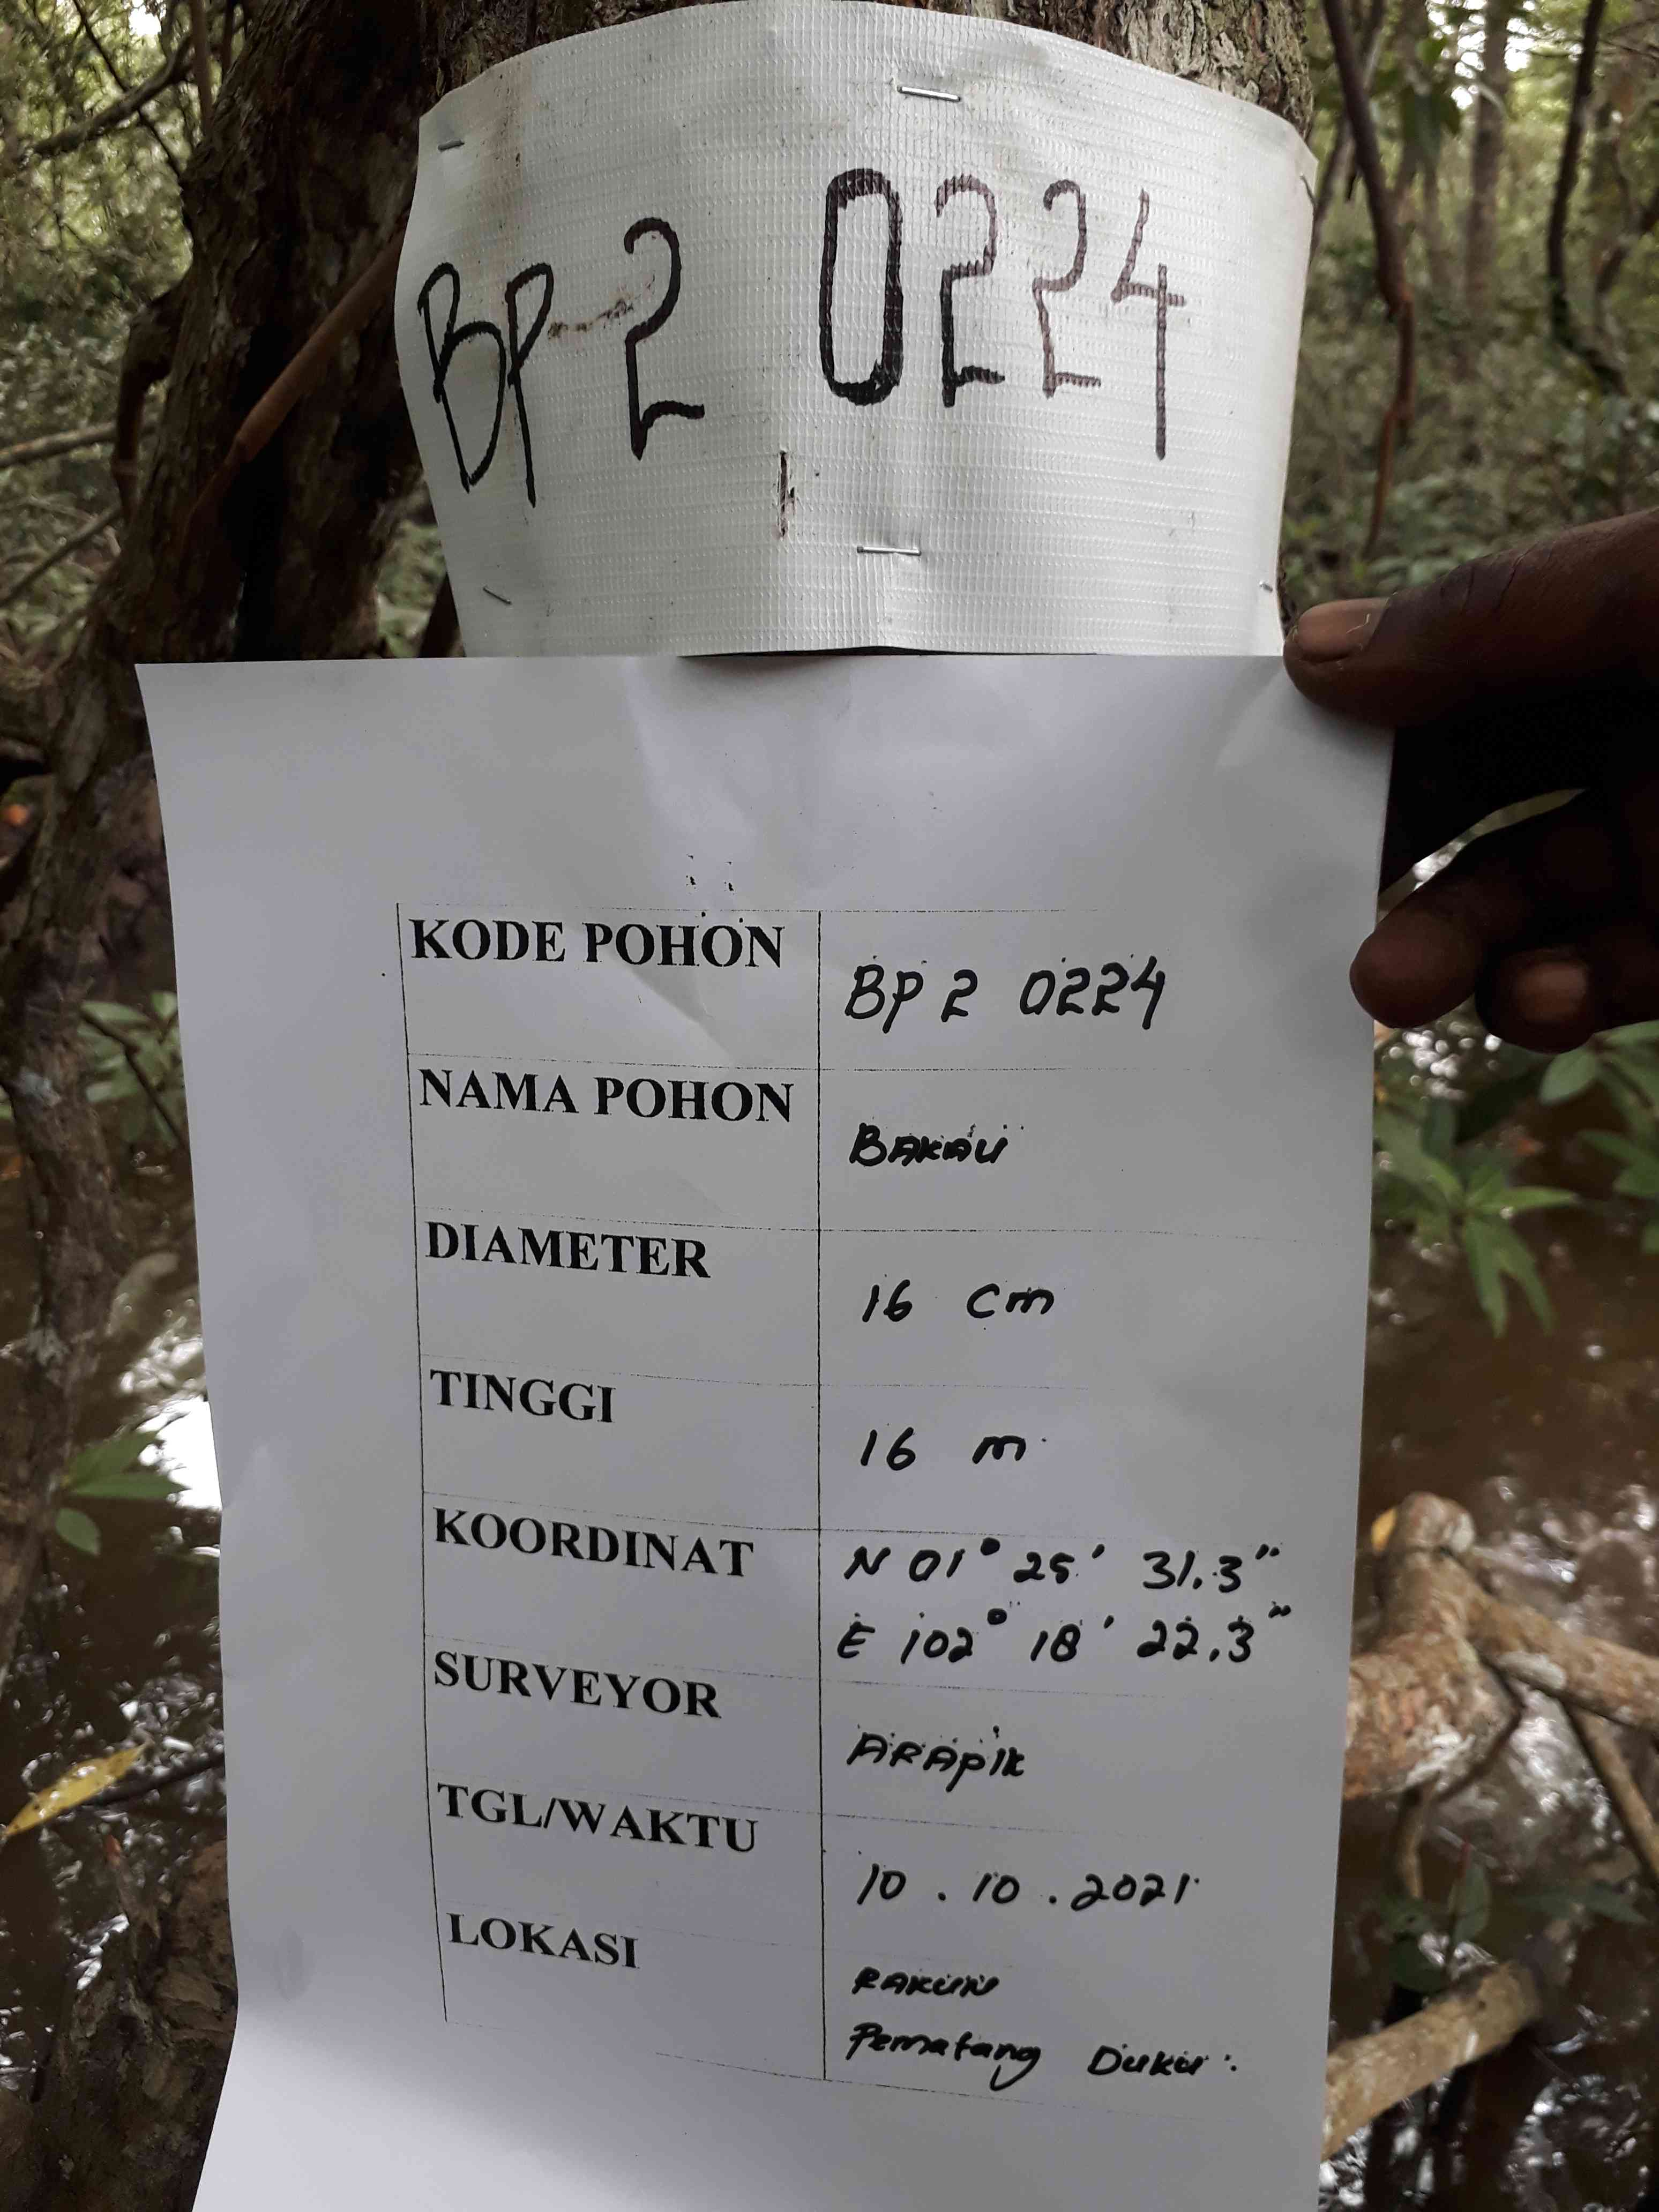 BP 2 0224
KODE POHON BP 2 0224
NAMA POHON BAKAU
DIAMETER 16 cm
TINGGI 16 m
KOORDINAT N 01° 25' 31.3"
E 102° 18' 22.3"
SURVEYOR ARAPIK
TGL/WAKTU 10.10.2021
LOKASI RAKUN
Pematang Duku